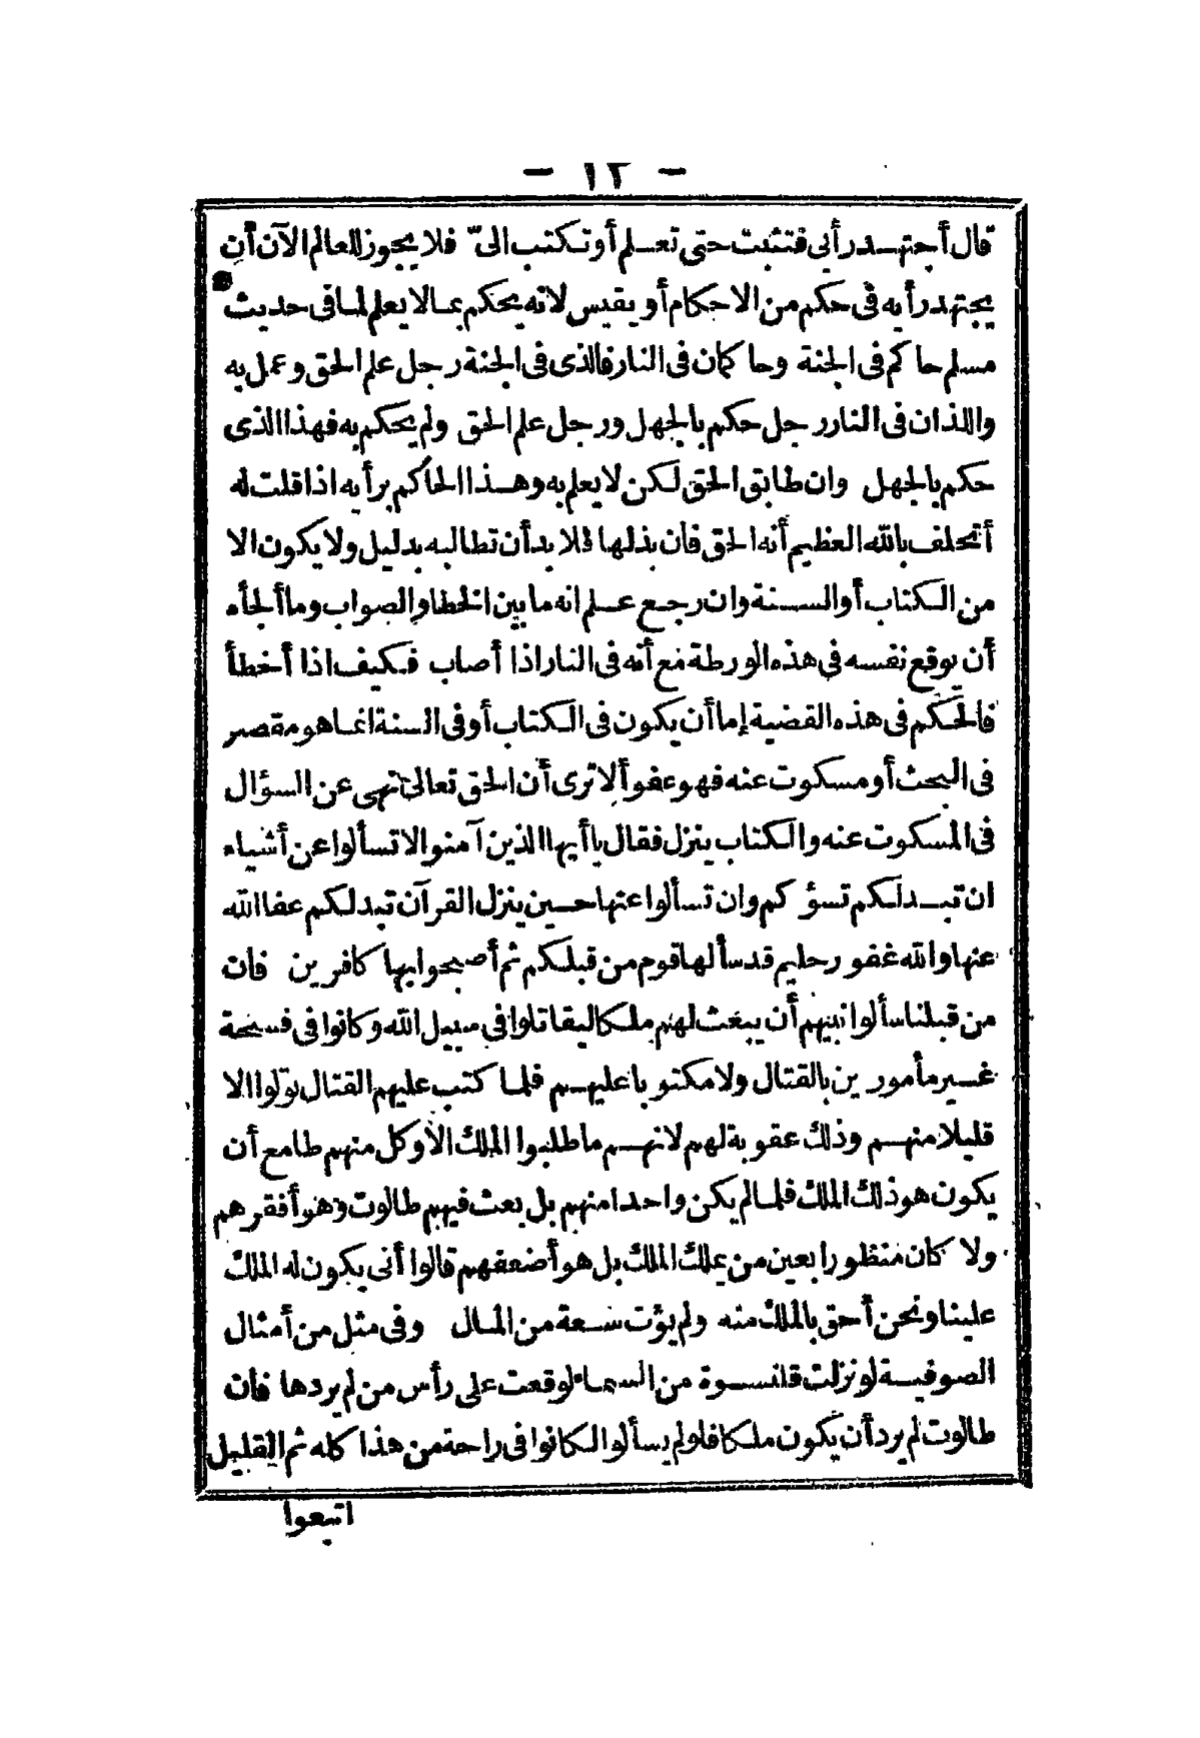 — ١٢ —
قال أجتهد رأيي فتثبت حتى تعلم أو تكتب الىّ فلا يجوز للعالم الآن أن
يجتهد رأيه في حكم من الاحكام أو يقيس لانه يحكم بما لا يعلم لما في حديث
مسلم حاكم في الجنة وحاكمان في النار فالذى في الجنة رجل علم الحق وعمل به
واللذان في النار رجل حكم بالجهل ورجل علم الحق ولم يحكم به فهذا الذى
حكم بالجهل وان طابق الحق لكن لا يعلم به وهذا الحاكم برأيه اذا قلت له
أتحلف بالله العظيم أنه الحق فان بذلها فلا بد أن تطالبه بدليل ولا يكون الا
من الكتاب أو السنة وان رجع علم انه ما بين الخطا والصواب وما ألجأه
أن يوقع نفسه في هذه الورطة مع أنه في النار اذا أصاب فكيف اذا أخطأ
فالحكم في هذه القضية إما أن يكون في الكتاب أو في السنة انما هو مقصر
في البحث أو مسكوت عنه فهو عفو ألا ترى أن الحق تعالى نهى عن السؤال
في المسكوت عنه والكتاب ينزل فقال يا أيها الذين آمنوا لا تسألوا عن أشياء
ان تبد لكم تسؤكم وان تسألوا عنها حين ينزل القرآن تبد لكم عفا الله
عنها والله غفور حليم قد سألها قوم من قبلكم ثم أصبحوا بها كافرين فان
من قبلنا سألوا نبيهم أن يبعث لهم ملكا ليقاتلوا في سبيل الله وكانوا في فسحة
غير مأمورين بالقتال ولا مكتوبا عليهم فلما كتب عليهم القتال تولوا الا
قليلا منهم وذلك عقوبة لهم لانهم ما طلبوا الملك الا وكل منهم طامع أن
يكون هو ذلك الملك فلما لم يكن واحدا منهم بل بعث فيهم طالوت وهو أفقرهم
ولا كان منظورا بعين من يملك الملك بل هو أضعفهم قالوا أنى يكون له الملك
علينا ونحن أحق بالملك منه ولم يؤت سعة من المال وفي مثل من أمثال
الصوفية لو نزلت قلنسوة من السماء لوقعت على رأس من لم يردها فان
طالوت لم يرد أن يكون ملكا فلو لم يسألوا لكانوا في راحة من هذا كله ثم القليل
اتبعوا